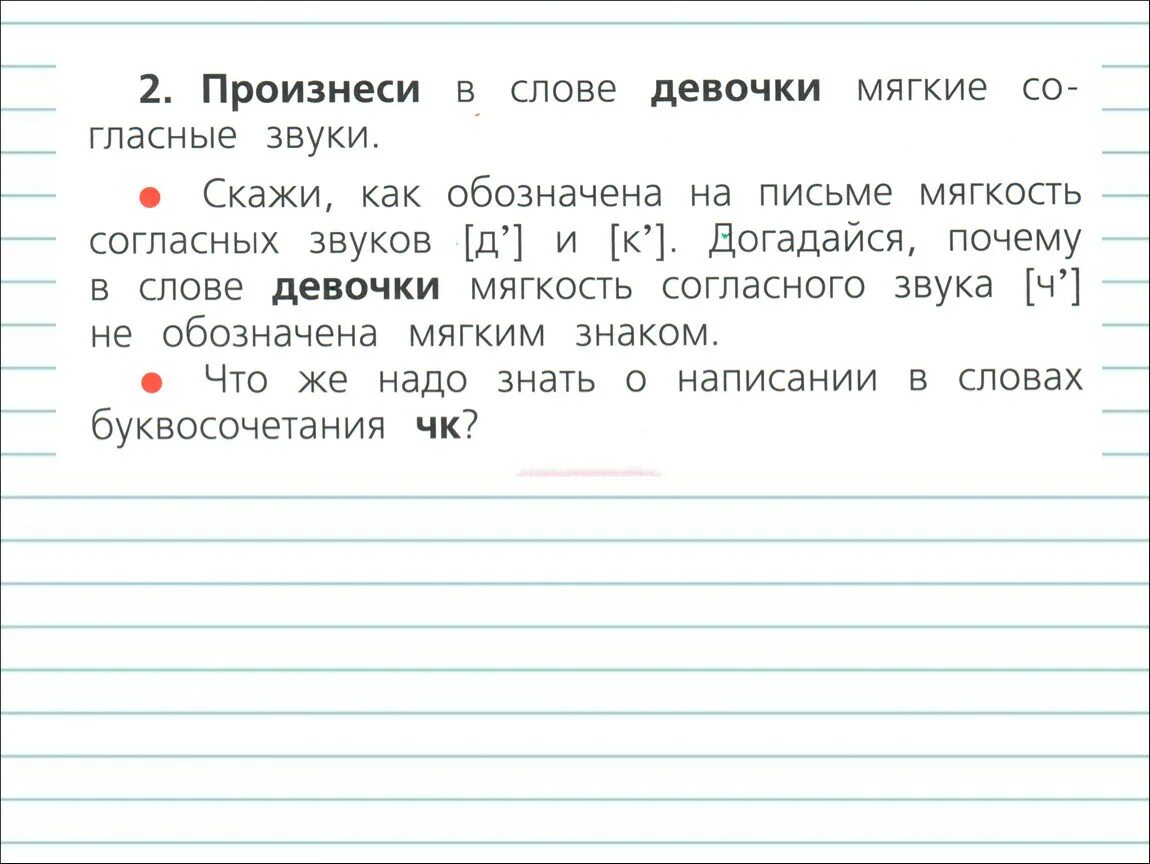 2. Произнеси в слове девочки мягкие со-
гласные звуки.
● Скажи, как обозначена на письме мягкость
согласных звуков [д’] и [к’]. Догадайся, почему
в слове девочки мягкость согласного звука [ч’]
не обозначена мягким знаком.
● Что же надо знать о написании в словах
буквосочетания чк?